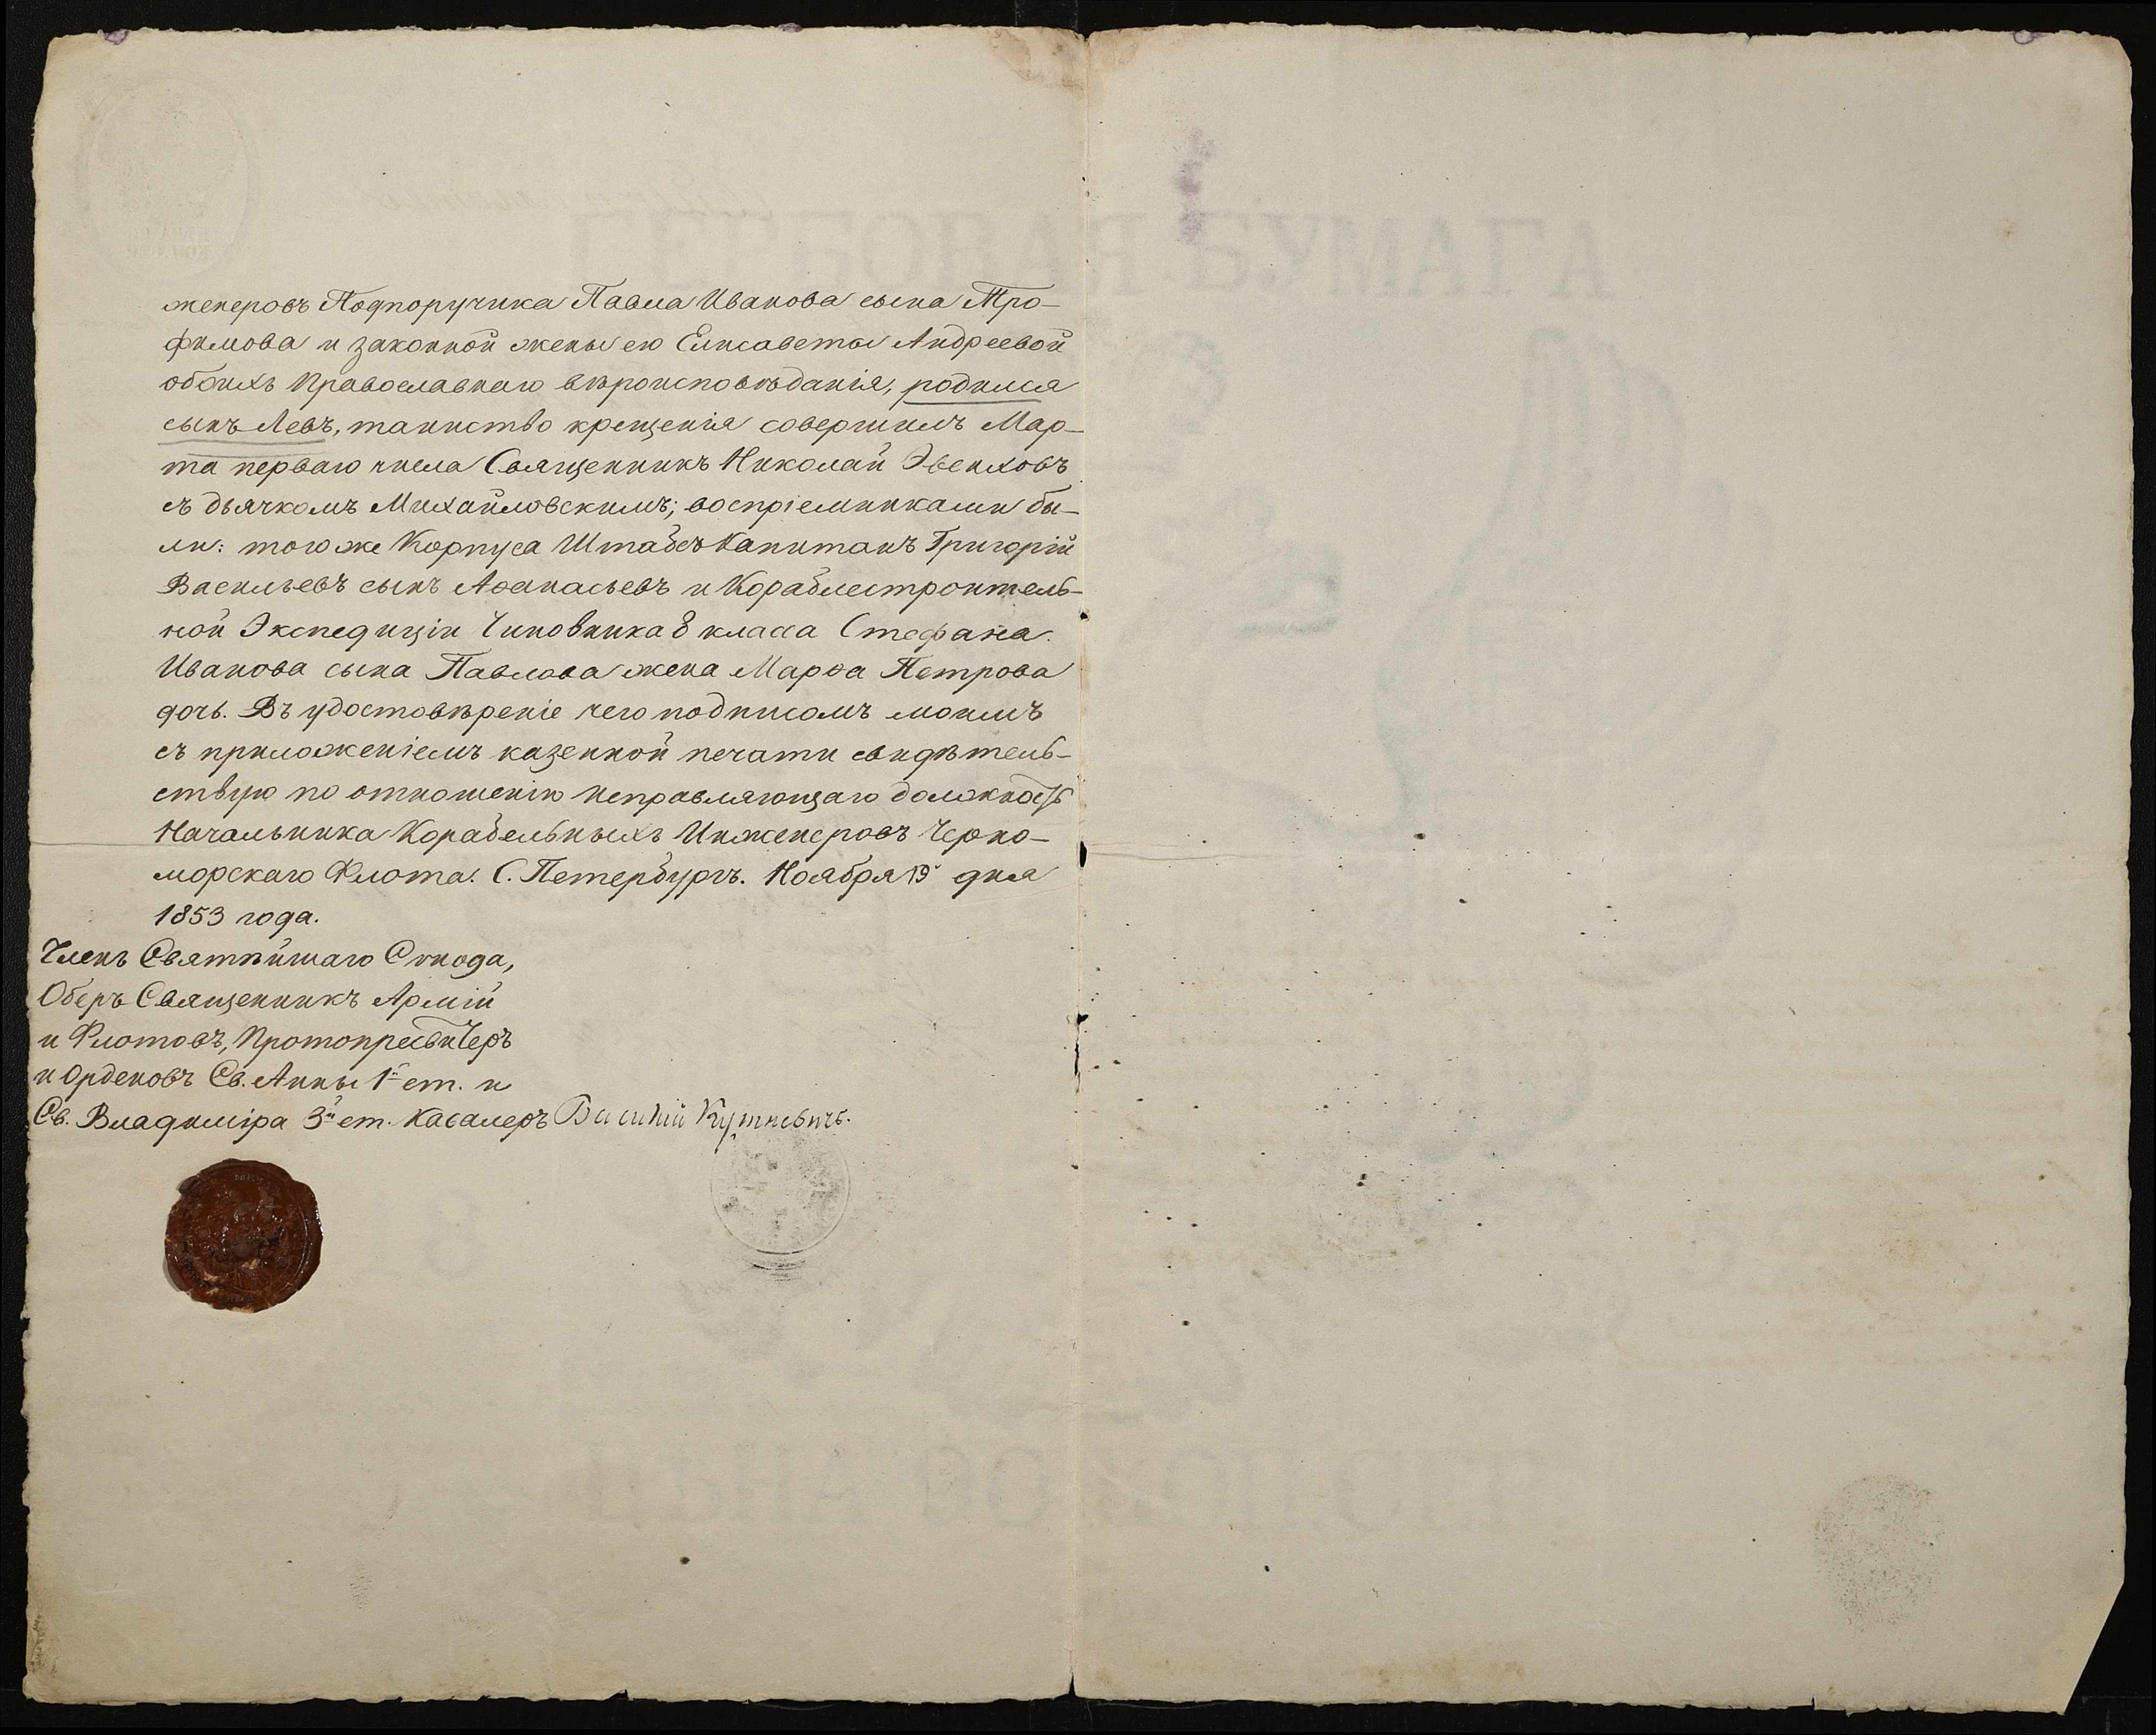 женеровъ Подпоручика Павла Иванова сына Тро-
фимова и законной жены его Елисаветы Андреевой
обоихъ Православнаго вѣроисповѣданія, родился
сынъ Левъ, таинство крещенія совершилъ Мар-
та перваго числа Священникъ Николай Эвенховъ
съ дьячкомъ Михайловскимъ; воспріемниками бы-
ли: того же Корпуса Штабсъ Капитанъ Григорій
Васильевъ сынъ Аѳанасьевъ и Кораблестроитель-
ной Экспедиціи Чиновника 8 класса Стефана
Иванова сына Павлова жена Марѳа Петрова
дочь. Въ удостовѣреніе чего подписомъ моимъ
съ приложеніемъ казенной печати свидѣтель-
ствую по отношенію исправляющаго должность
Начальника Корабельныхъ Инженеровъ Черно-
морскаго Флота. С. Петербургъ. Ноября 19 дня
1853 года.
Членъ Святѣйшаго Синода,
Оберъ Священникъ Армій
и Флотовъ, Протопресвитеръ
и Орденовъ Св. Анны 1й ст. и
Св. Владиміра 3й ст. Кавалеръ Василій Кутневичъ.